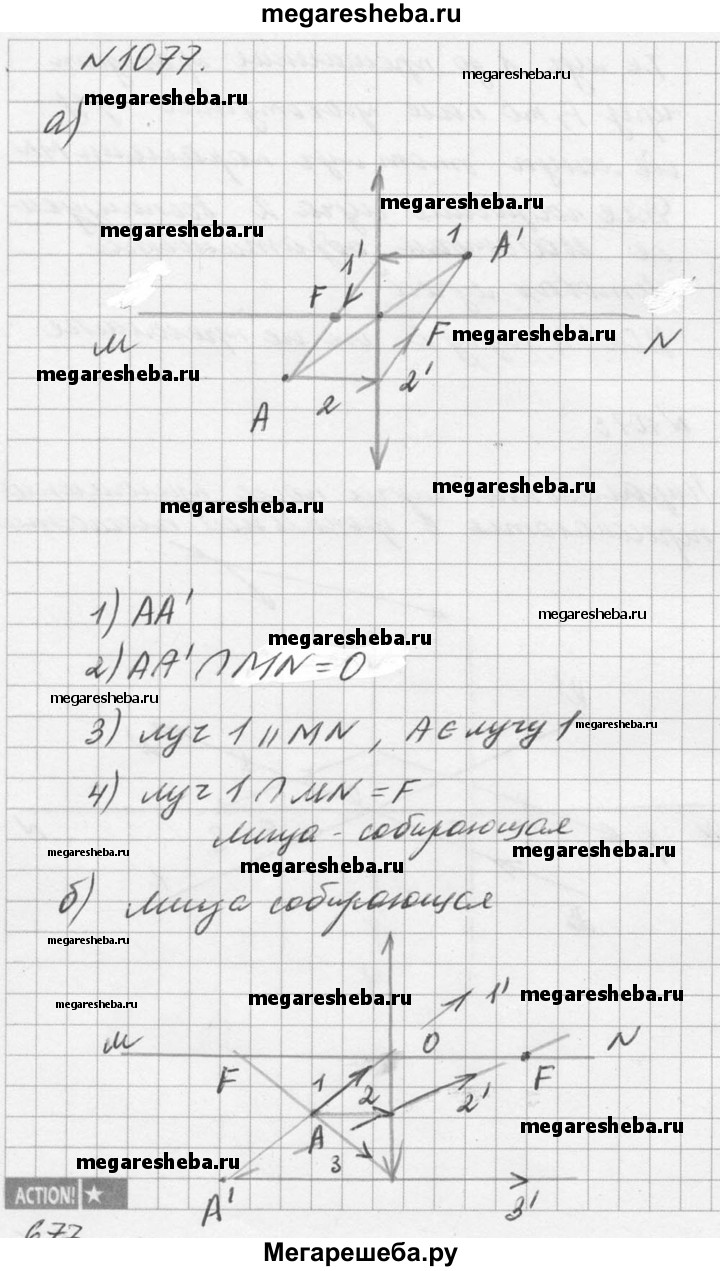 megaresheba.ru
N1077.
megaresheba.ru
megaresheba.ru
а)
megaresheba.ru
megaresheba.ru
1' 1 A'
F
M F megaresheba.ru N
megaresheba.ru
2 2'
A
megaresheba.ru
megaresheba.ru
1) AA'
megaresheba.ru
megaresheba.ru
2) AA' ∩ MN = O
megaresheba.ru
3) луч 1 || MN, A ∈ лучу 1
megaresheba.ru
4) луч 1 ∩ MN = F
линза - собирающая
megaresheba.ru
megaresheba.ru
megaresheba.ru
б) линза собирающая
megaresheba.ru
megaresheba.ru
megaresheba.ru
1'
megaresheba.ru
M O N
F 1 2 2' F
A
megaresheba.ru
3
megaresheba.ru
ACTION!
A' 3'
677
Мегарешеба.ру